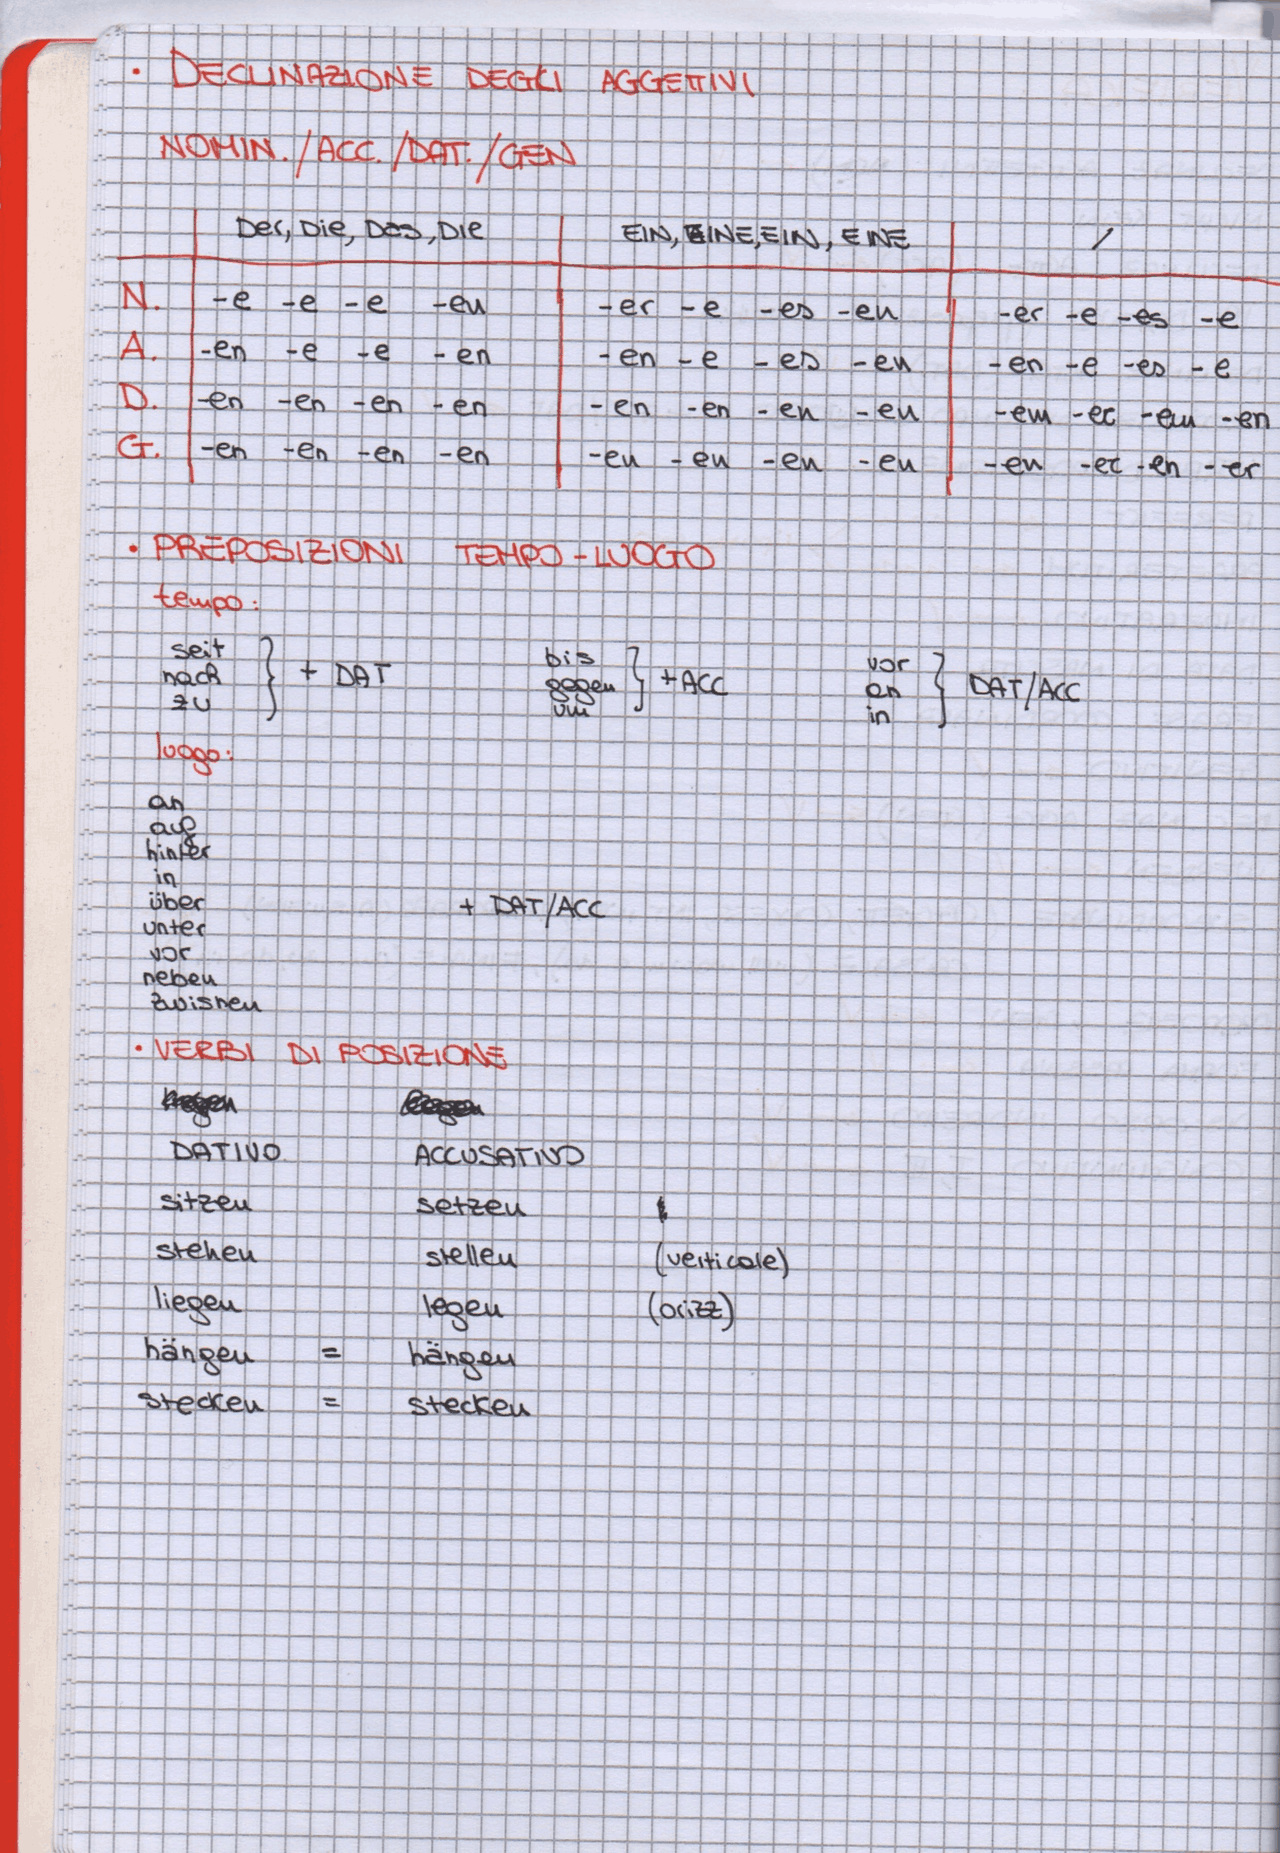 · DECLINAZIONE DEGLI AGGETTIVI
NOMIN./ACC./DAT./GEN
Der, Die, Das, Die EIN, EINE, EIN, EINE /
N. -e -e -e -en -er -e -es -en -er -e -es -e
A. -en -e -e -en -en -e -es -en -en -e -es -e
D. -en -en -en -en -en -en -en -en -em -er -em -en
G. -en -en -en -en -en -en -en -en -en -er -en -er
· PREPOSIZIONI TEMPO-LUOGO
tempo:
seit
nach + DAT
zu
bis
gegen + ACC
um
vor
an DAT/ACC
in
luogo:
an
auf
hinter
in
über + DAT/ACC
unter
vor
neben
zwisnen
· VERBI DI POSIZIONE
DATIVO ACCUSATIVO
sitzen setzen
stehen stellen (verticale)
liegen legen (orizz)
hängen = hängen
stecken = stecken